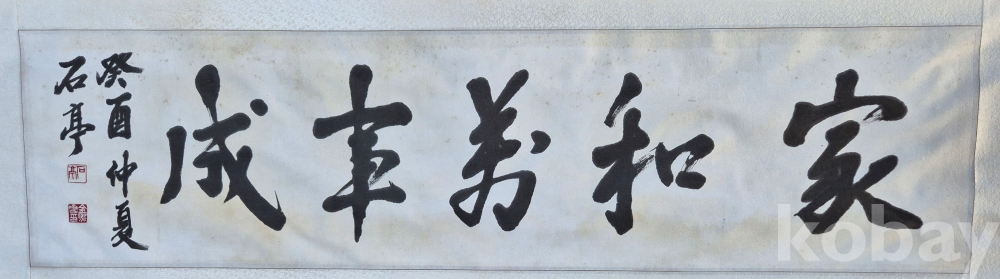 家和萬事成
癸酉仲夏
石亭
kobay